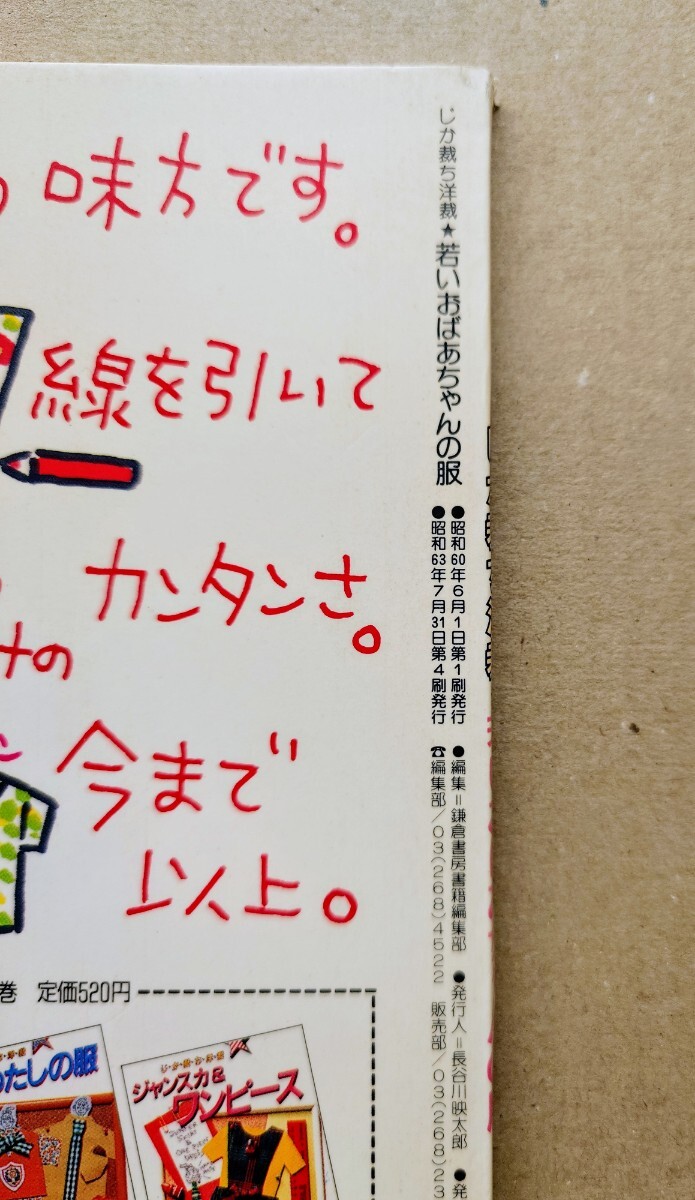 味方です。
線を引いて
カンタンさ。
けの
今まで
以上。
巻 定価520円
たしの服
じ・か・裁・ち・洋・裁
ジャンスカ&
ワンピース
じか裁ち洋裁★若いおばあちゃんの服
●昭和60年6月1日第1刷発行
●昭和63年7月31日第4刷発行
●編集=鎌倉書房書籍編集部 ●発行人=長谷川映太郎 ●発
☎編集部/03(268)4522 販売部/03(268)23